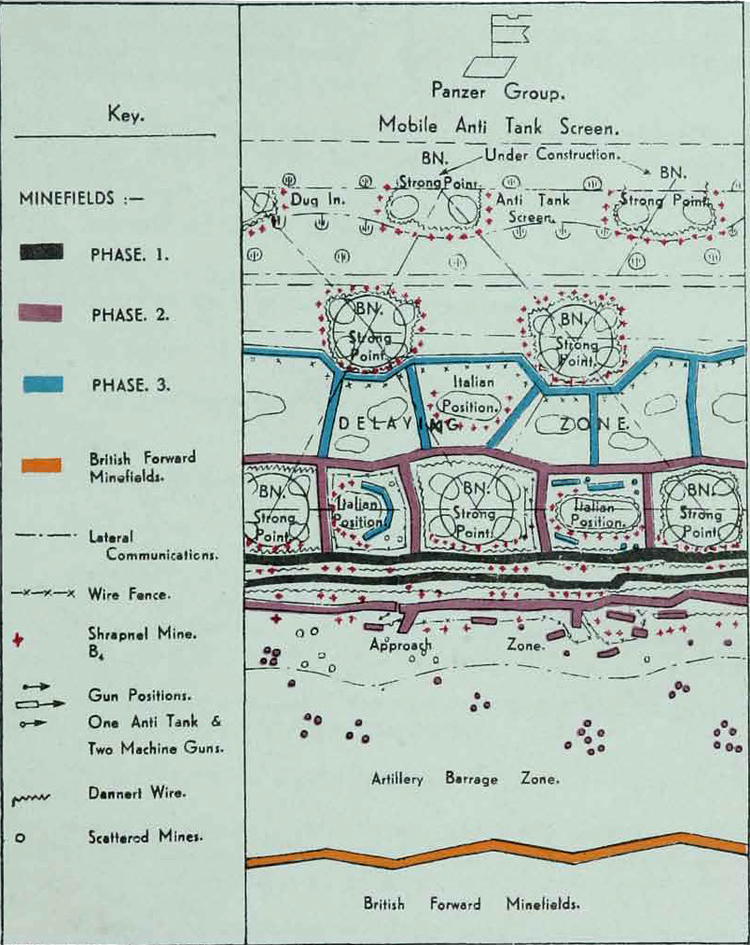 Key.
MINEFIELDS :—
PHASE. 1.
PHASE. 2.
PHASE. 3.
British Forward
Minefields.
Lateral
Communications.
Wire Fence.
Shrapnel Mine.
B4
Gun Positions.
One Anti Tank &
Two Machine Guns.
Dannert Wire.
Scattered Mines.
Panzer Group.
Mobile Anti Tank Screen.
BN. Under Construction.
BN.
Strong Point.
Dug In.
Anti Tank
Screen.
Strong Point.
BN.
Strong
Point.
BN.
Strong
Point.
Italian
Position.
DELAYING ZONE
BN.
Strong
Point
Italian
Position
BN.
Strong
Point.
Italian
Position.
BN.
Strong
Point
Approach Zone.
Artillery Barrage Zone.
British Forward Minefields.